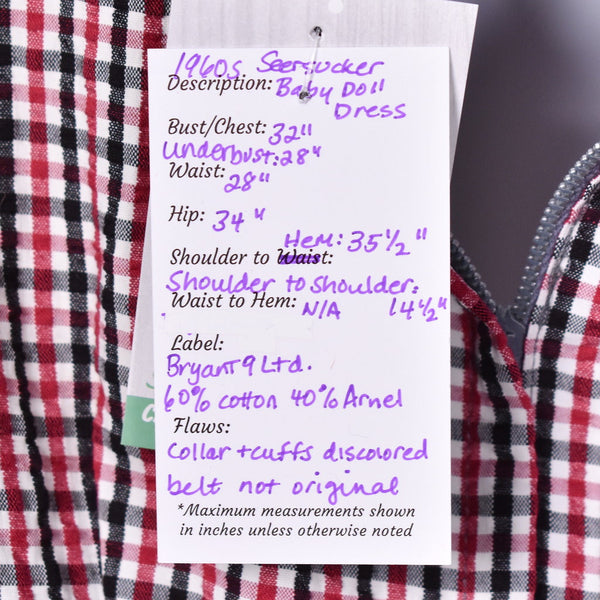 1960s Seersucker
Description: Baby Doll
Dress
Bust/Chest: 32"
Underbust: 28"
Waist: 28"
Hip: 34"
Hem: 35 1/2"
Shoulder to Waist:
Shoulder to Shoulder:
Waist to Hem: N/A 14 1/2"
Label:
Bryant 9 Ltd.
60% cotton 40% Arnel
Flaws:
Collar + cuffs discolored
belt not original
*Maximum measurements shown
in inches unless otherwise noted